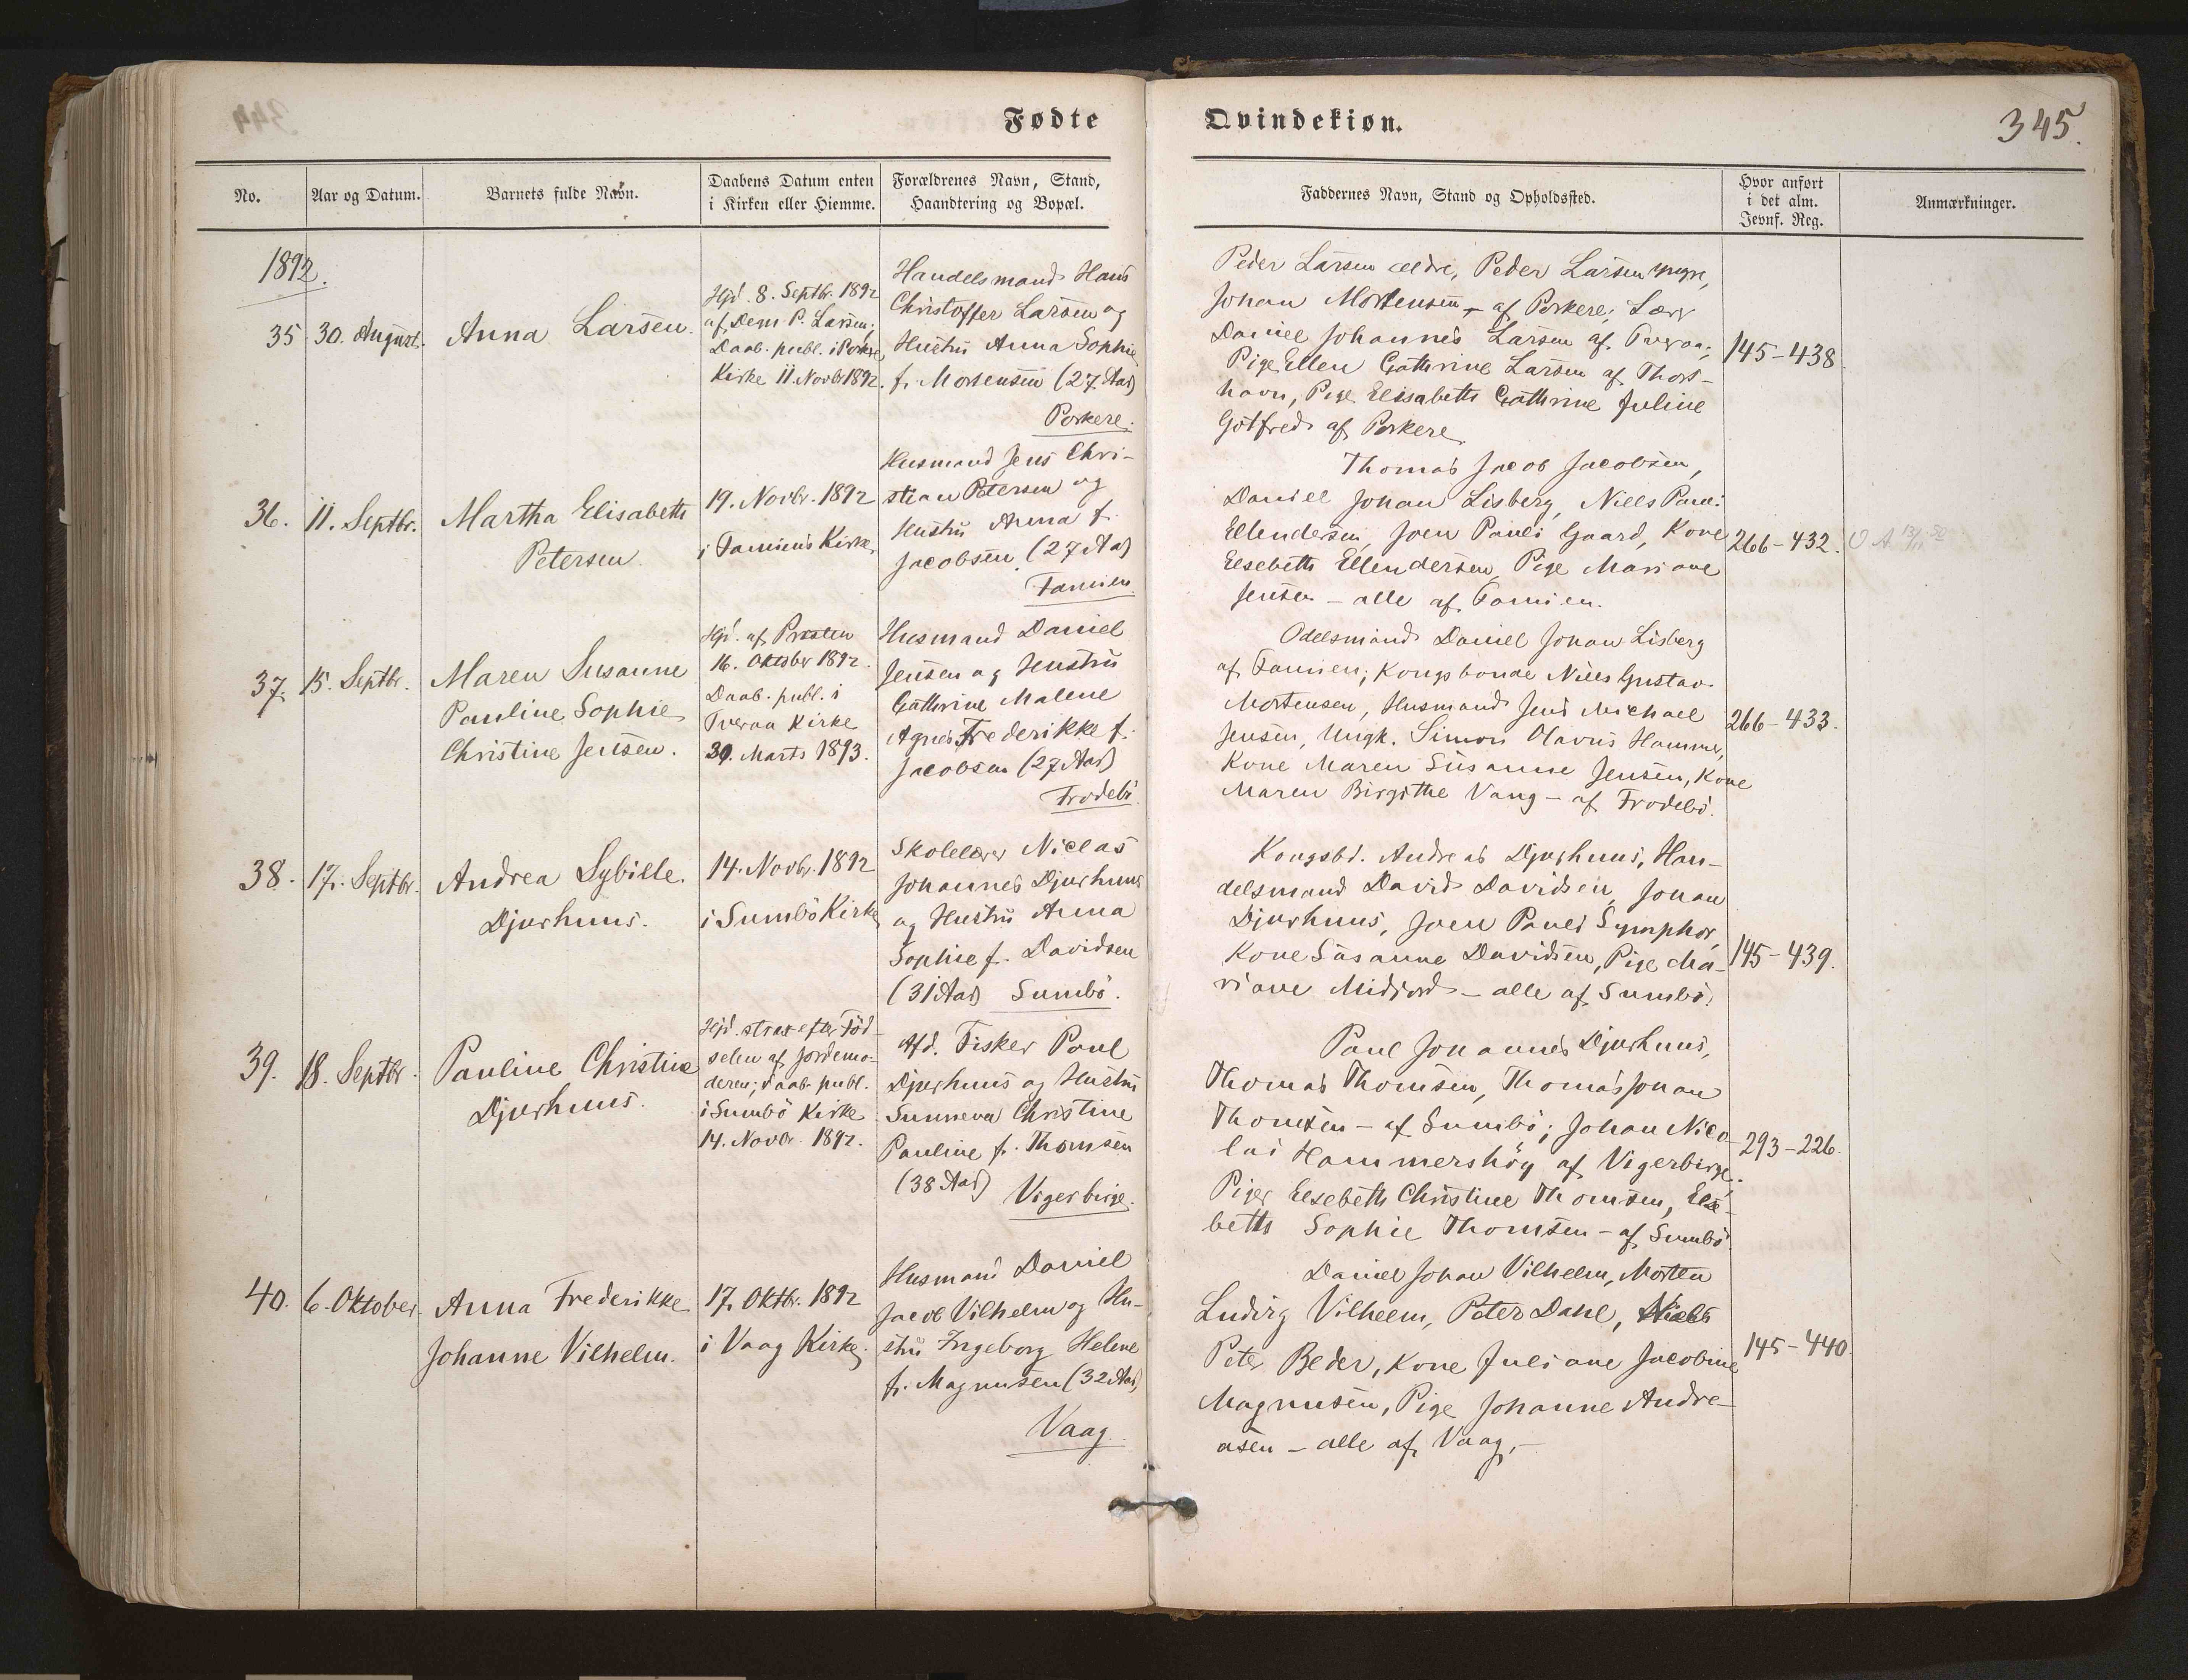 Fødte
Qvindekiøn.
345.
No.
Aar og Datum.
Barnets fulde Navn.
Daabens Datum enten
i Kirken eller Hiemme.
Forældrenes Navn, Stand,
Haandtering og Bopæl.
Faddernes Navn, Stand og Opholdssted.
Hvor anført
i det alm.
Jevnf. Reg.
Anmærkninger.
1892.
35
30. August.
Anna Larsen.
Hjd. 8. Septbr. 1892
af Degn P. Larsen;
Daab. publ. i Porkere
Kirke 11. Novbr 1892.
Handelsmand Hans
Christoffer Larsen og
Hustru Anna Sophie
f. Mortensen (27 Aar)
Porkere.
Peder Larsen ældre, Peder Larsen yngre,
Johan Mortensen, - af Porkere; Lærer
Daniel Johannes Larsen af Tveraa;
Pige Ellen Cathrine Larsen af Thors-
havn, Pige Elisabeth Cathrine Juline
Gotfred af Porkere.
145-438.
36.
11. Septbr.
Martha Elisabeth
Petersen.
19. Novbr. 1892
i Famiens Kirke.
Husmand Jens Chri-
stian Petersen og
Hustru Anna f.
Jacobsen. (27 Aar)
Famien.
Thomas Jacob Jacobsen,
Daniel Johan Lisberg, Niels Pauli
Ellendersen, Joen Pauli Gaard, Kone
Elsebeth Ellendersen, Pige Mariane
Jensen - alle af Famien.
266-432.
37.
15. Septbr.
Maren Susanne
Pauline Sophie
Christine Jensen.
Hjd. af Præsten
16. Oktober 1892.
Daab. publ. i
Tveraa Kirke
30. Marts 1893.
Husmand Daniel
Jensen og Hustru
Cathrine Malene
Agnes Frederikke f.
Jacobsen (27 Aar)
Frodebö.
Odelsmand Daniel Johan Lisberg
af Famien; Kongsbonde Niels Gustav
Mortensen, Husmand Jens Michael
Jensen, Ungk. Simon Olavus Hammer,
Kone Maren Susanne Jensen, Kone
Maren Birgithe Vang - af Frodebö.
266-433.
38.
17. Septbr.
Andrea Sybille
Djurhuus.
14. Novbr. 1892
i Sumbö Kirke
Skolelærer Niclas
Johannes Djurhuus
og Hustru Anna
Sophie f. Davidsen
(31 Aar) Sumbö.
Kongsbd. Andreas Djurhuus, Han-
delsmand David Davidsen, Johan
Djurhuus, Joen Pauli Symphor,
Kone Susanne Davidsen, Pige Ma-
riane Midjord - alle af Sumbö.
145-439.
39.
18. Septbr.
Pauline Christine
Djurhuus.
Hjd. strax efter Föd-
selen af Jordemo-
deren; Daab publ.
i Sumbö Kirke
14. Novbr. 1892.
Afd. Fisker Poul
Djurhuus og Hustru
Sunneva Christine
Pauline f. Thomsen
(38 Aar)
Vigerbirge.
Paul Johannes Djurhuus,
Thomas Thomsen, Thomas Johan
Thomsen - af Sumbö; Johan Nico-
lai Hammershög af Vigerbirge;
Piger Elsebeth Christine Thomsen, Else-
beth Sophie Thomsen - af Sumbö.
293-226.
40.
6. Oktober.
Anna Frederikke
Johanne Vilhelm.
17. Oktbr. 1892
i Vaag Kirke.
Husmand Daniel
Jacob Vilhelm og Hu-
stru Ingeborg Helene
f. Magnusen (32 Aar)
Vaag.
Daniel Johan Vilhelm, Morten
Ludvig Vilhelm, Peter Dahl, Niels
Peter Beder, Kone Juliane Jacobine
Magnusen, Pige Johanne Andre-
asen - alle af Vaag.
145-440.